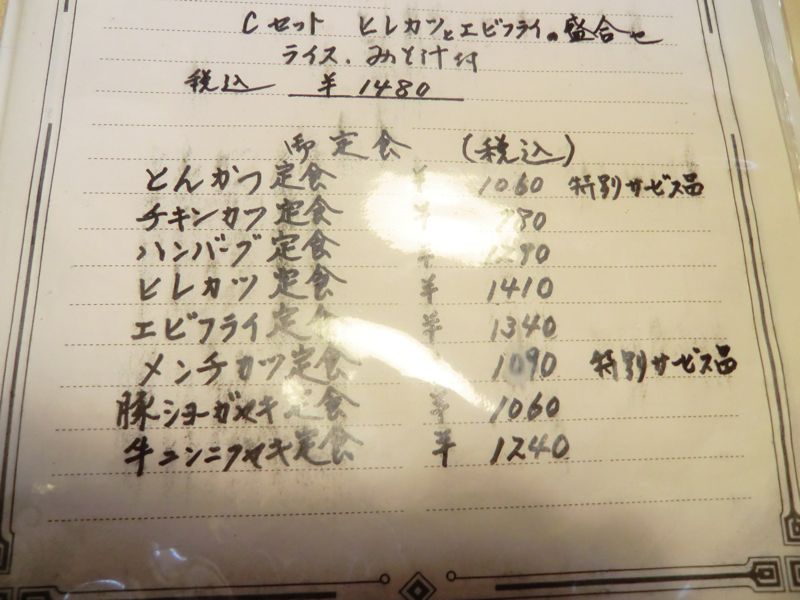 Cセット ヒレカツとエビフライの盛合せ
ライス、みそ汁付
税込 ¥1480
御定食 (税込)
とんかつ定食 ¥1060 特別サービス品
チキンカツ定食 ¥
ハンバーグ定食 ¥
ヒレカツ定食 ¥1410
エビフライ定食 ¥1340
メンチカツ定食 1090 特別サービス品
豚ショーガヤキ定食 ¥1060
牛ニンニクヤキ定食 ¥1240